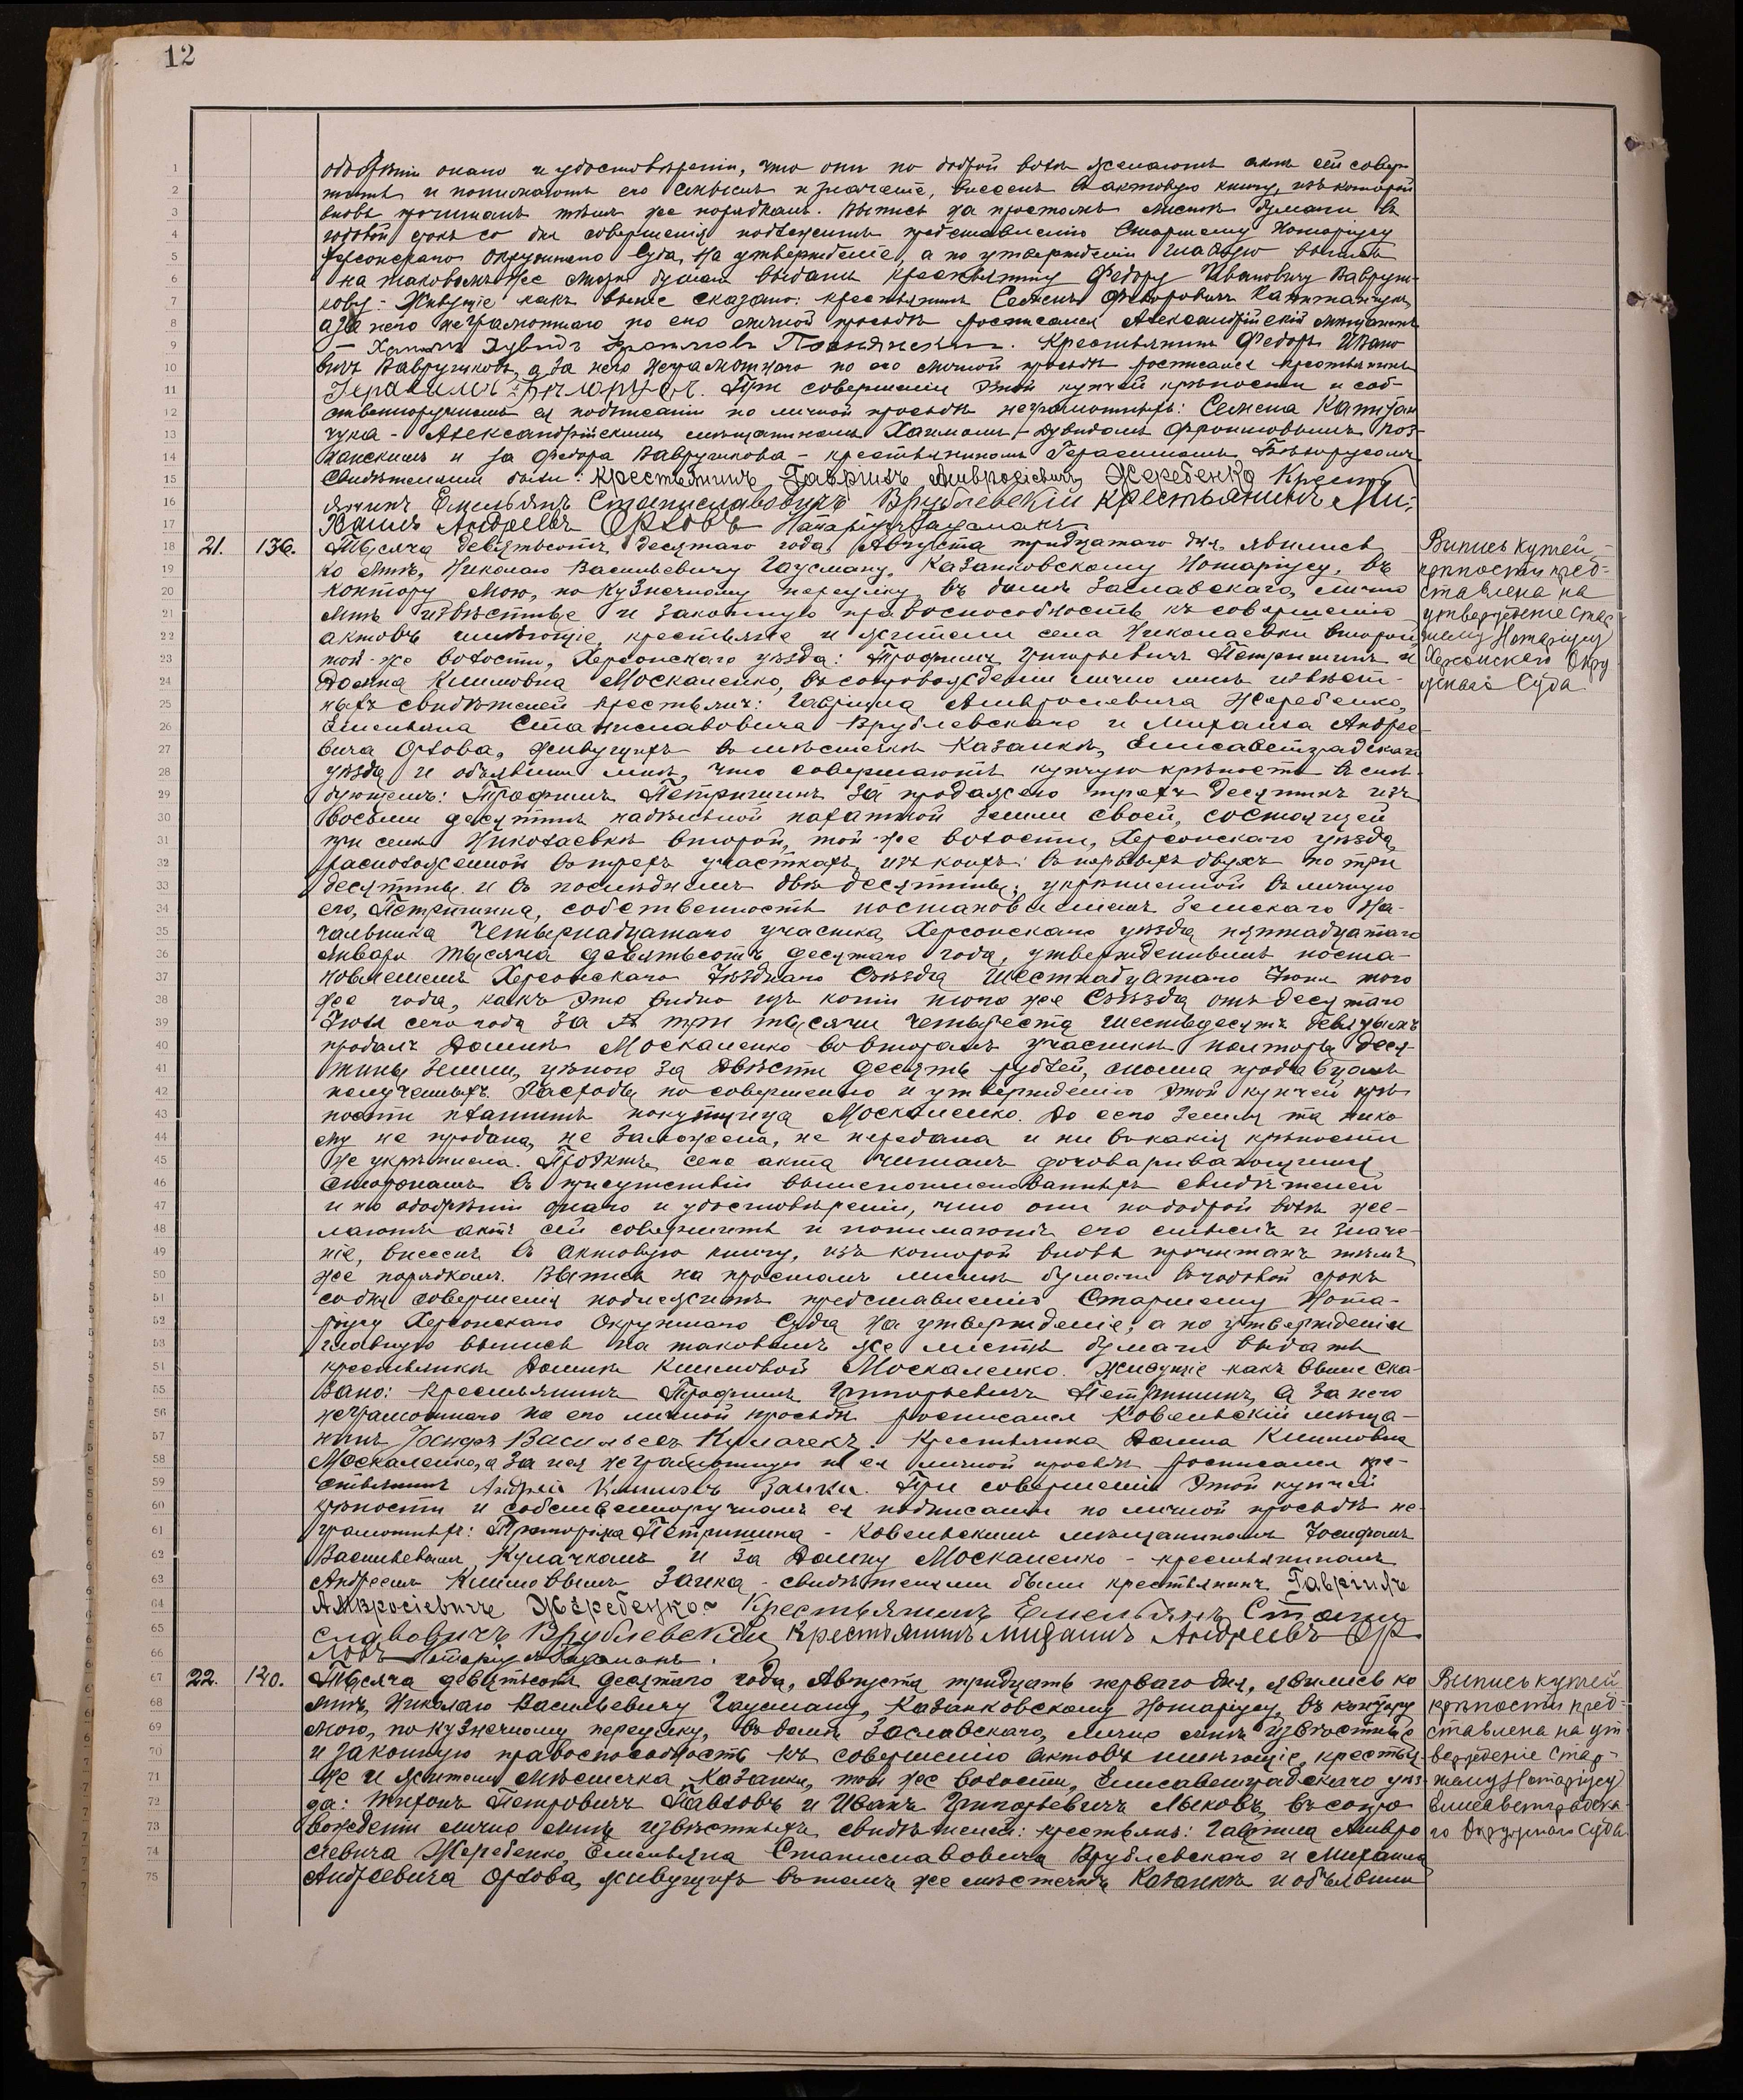 12
одобреніи онаго и удостовѣреніи, что они по доброй волѣ желаютъ актъ сей совер-
шить и понимаютъ его смыслъ и значеніе, внесенъ въ актовую книгу, изъ которой
вновь прочитанъ тѣмъ же порядкомъ. Выпись на простомъ листѣ бумаги въ
годовой срокъ со дня совершенія подлежитъ представленію Старшему Нотаріусу
Херсонскаго Окружнаго Суда, на утвержденіе, а по утвержденіи главную выпись
на таковомъ же листѣ бумаги выдать крестьянину Федору Ивановичу Вавруш-
кову. Живущіе какъ выше сказано: крестьянинъ Семенъ Федоровичъ Капитанчукъ,
а за него неграмотнаго по его личной просьбѣ росписался Александрійскій мѣщанинъ
Хаимъ Дувидъ Познянскій. Крестьянинъ Федоръ Ивано-
вичъ Ваврушковъ, а за него неграмотнаго по его личной просьбѣ росписался крестьянинъ
Герасимъ Бѣлорусъ. При совершеніи этой купчей крѣпости и соб-
ственноручномъ ея подписаніи по личной просьбѣ неграмотныхъ: Семена Капитан-
чука - Александрійскимъ мѣщаниномъ Хаимомъ-Дувидомъ Фроимовымъ Поз-
нанскимъ и за Федора Ваврушкова - крестьяниномъ Герасимомъ Бѣлорусомъ
Свидѣтелями были: Крестьянинъ Гавріилъ Амвросіевичъ Жеребенко Кресть-
янинъ Емельянъ Станиславовичъ Врублевскій крестьянинъ Ми-
хаилъ Андреевъ Орловъ Нотаріусъ Гаусманъ
21. 136. Тысяча девятьсотъ десятаго года, Августа тридцатаго дня, явились
ко мнѣ, Николаю Васильевичу Гаусману, Казанковскому Нотаріусу, въ
контору мою, по Кузнечному переулку, въ домѣ Заславскаго, лично
мнѣ извѣстные и законную правоспособность къ совершенію
актовъ имѣющіе, крестьяне и жители села Николаевки второй,
той-же волости, Херсонскаго уѣзда: Трофимъ Григорьевичъ Петришинъ и
Домна Климовна Москаленко, въ сопровожденіи лично мнѣ извѣст-
ныхъ свидѣтелей крестьянъ: Гавріила Амвросіевича Жеребенко,
Емельяна Станиславовича Врублевскаго и Михаила Андрее-
вича Орлова, живущихъ въ мѣстечкѣ Казанкѣ, Елисаветградскаго
уѣзда и объявили мнѣ, что совершаютъ купчую крѣпость въ слѣ-
дующемъ: Трофимъ Петришинъ за продажею трехъ десятинъ изъ
восьми десятинъ надѣльной пахатной земли своей, состоящей
при селѣ Николаевкѣ второй, той-же волости, Херсонскаго уѣзда,
расположенной въ трехъ участкахъ, изъ коихъ: въ первыхъ двухъ по три
десятины и въ послѣднемъ двѣ десятины, укрѣпленной въ личную
его, Петришина, собственность постановленіемъ Земскаго На-
чальника четырнадцатаго участка, Херсонскаго уѣзда пятнадцатаго
Января тысяча девятьсотъ десятаго года, утвержденнымъ поста-
новленіемъ Херсонскаго Уѣзднаго Съѣзда Шестнадцатаго Іюня того
же года, какъ это видно изъ копіи того же Съѣзда отъ десятаго
Іюля сего года за № три тысячи четыреста шестьдесятъ девятымъ
продалъ Домнѣ Москаленко во второмъ участкѣ полторы деся-
тины земли, цѣною за Двѣсти десять рублей, сполна продавцомъ
полученныхъ. Расходы по совершенію и утвержденію этой купчей крѣ-
пости платитъ покупщица Москаленко. До сего земля та нико-
му не продана, не заложена, не передана и ни въ какія крѣпости
не укрѣплена. Проэктъ сего акта читанъ договаривающимся
сторонамъ въ присутствіи вышепоименованныхъ свидѣтелей
и по одобреніи онаго и удостовѣреніи, что они по доброй волѣ же-
лаютъ актъ сей совершить и понимаютъ его смыслъ и значе-
ніе, внесенъ въ актовую книгу, изъ которой вновь прочитанъ тѣмъ
же порядкомъ. Выпись на простомъ листѣ бумаги въ годовой срокъ
со дня совершенія подлежитъ представленію Старшему Нота-
ріусу Херсонскаго Окружнаго Суда на утвержденіе, а по утвержденіи
главную выпись на таковомъ же листѣ бумаги выдать
крестьянкѣ Домнѣ Климовой Москаленко. Живущіе какъ выше ска-
зано: Крестьянинъ Трофимъ Григорьевичъ Петришинъ, а за него
неграмотнаго по его личной просьбѣ росписался Ковельскій мѣща-
нинъ Іосифъ Васильевъ Кулачекъ. Крестьянка Домна Климовна
Москаленко, а за нея неграмотную по ея личной просьбѣ росписался кре-
стьянинъ Андрей Климовъ Заика. При совершеніи этой купчей
крѣпости и собственноручномъ ея подписаніи по личной просьбѣ не-
грамотныхъ: Петришина - Ковельскимъ мѣщаниномъ Іосифомъ
Васильевымъ Кулачкомъ и за Домну Москаленко - крестьяниномъ
Андреемъ Климовымъ Заика - свидѣтелями были крестьянинъ Гавріилъ
Амвросіевичъ Жеребенко Крестьянинъ Емельянъ Стани-
славовичъ Врублевскій Крестьянинъ Михаилъ Андреевъ Ор-
ловъ Нотаріусъ Гаусманъ.
22. 140. Тысяча девятьсотъ десятаго года, Августа тридцать перваго дня, явились ко
мнѣ, Николаю Васильевичу Гаусману, Казанковскому Нотаріусу, въ контору
мою, по Кузнечному переулку, въ домѣ Заславскаго, лично мнѣ извѣстные
и законную правоспособность къ совершенію актовъ имѣющіе, крестья-
не и жители мѣстечка Казанки, той же волости, Елисаветградскаго уѣз-
да: Миронъ Петровичъ Павловъ и Иванъ Григорьевичъ Лыковъ, въ сопро-
вожденіи лично мнѣ извѣстныхъ свидѣтелей: крестьянъ: Гавріила Амвро-
сіевича Жеребенко, Емельяна Станиславовича Врублевскаго и Михаила
Андреевича Орлова, живущихъ въ томъ же мѣстечкѣ Казанкѣ и объявили
Выпись купчей
крѣпости пред-
ставлена на
утвержденіе Стар-
шему Нотаріусу
Херсонскаго Окру-
жнаго Суда
Выпись купчей
крѣпости пред-
ставлена на ут-
вержденіе Стар-
шему Нотаріусу
Елисаветградска-
го Окружнаго Суда.